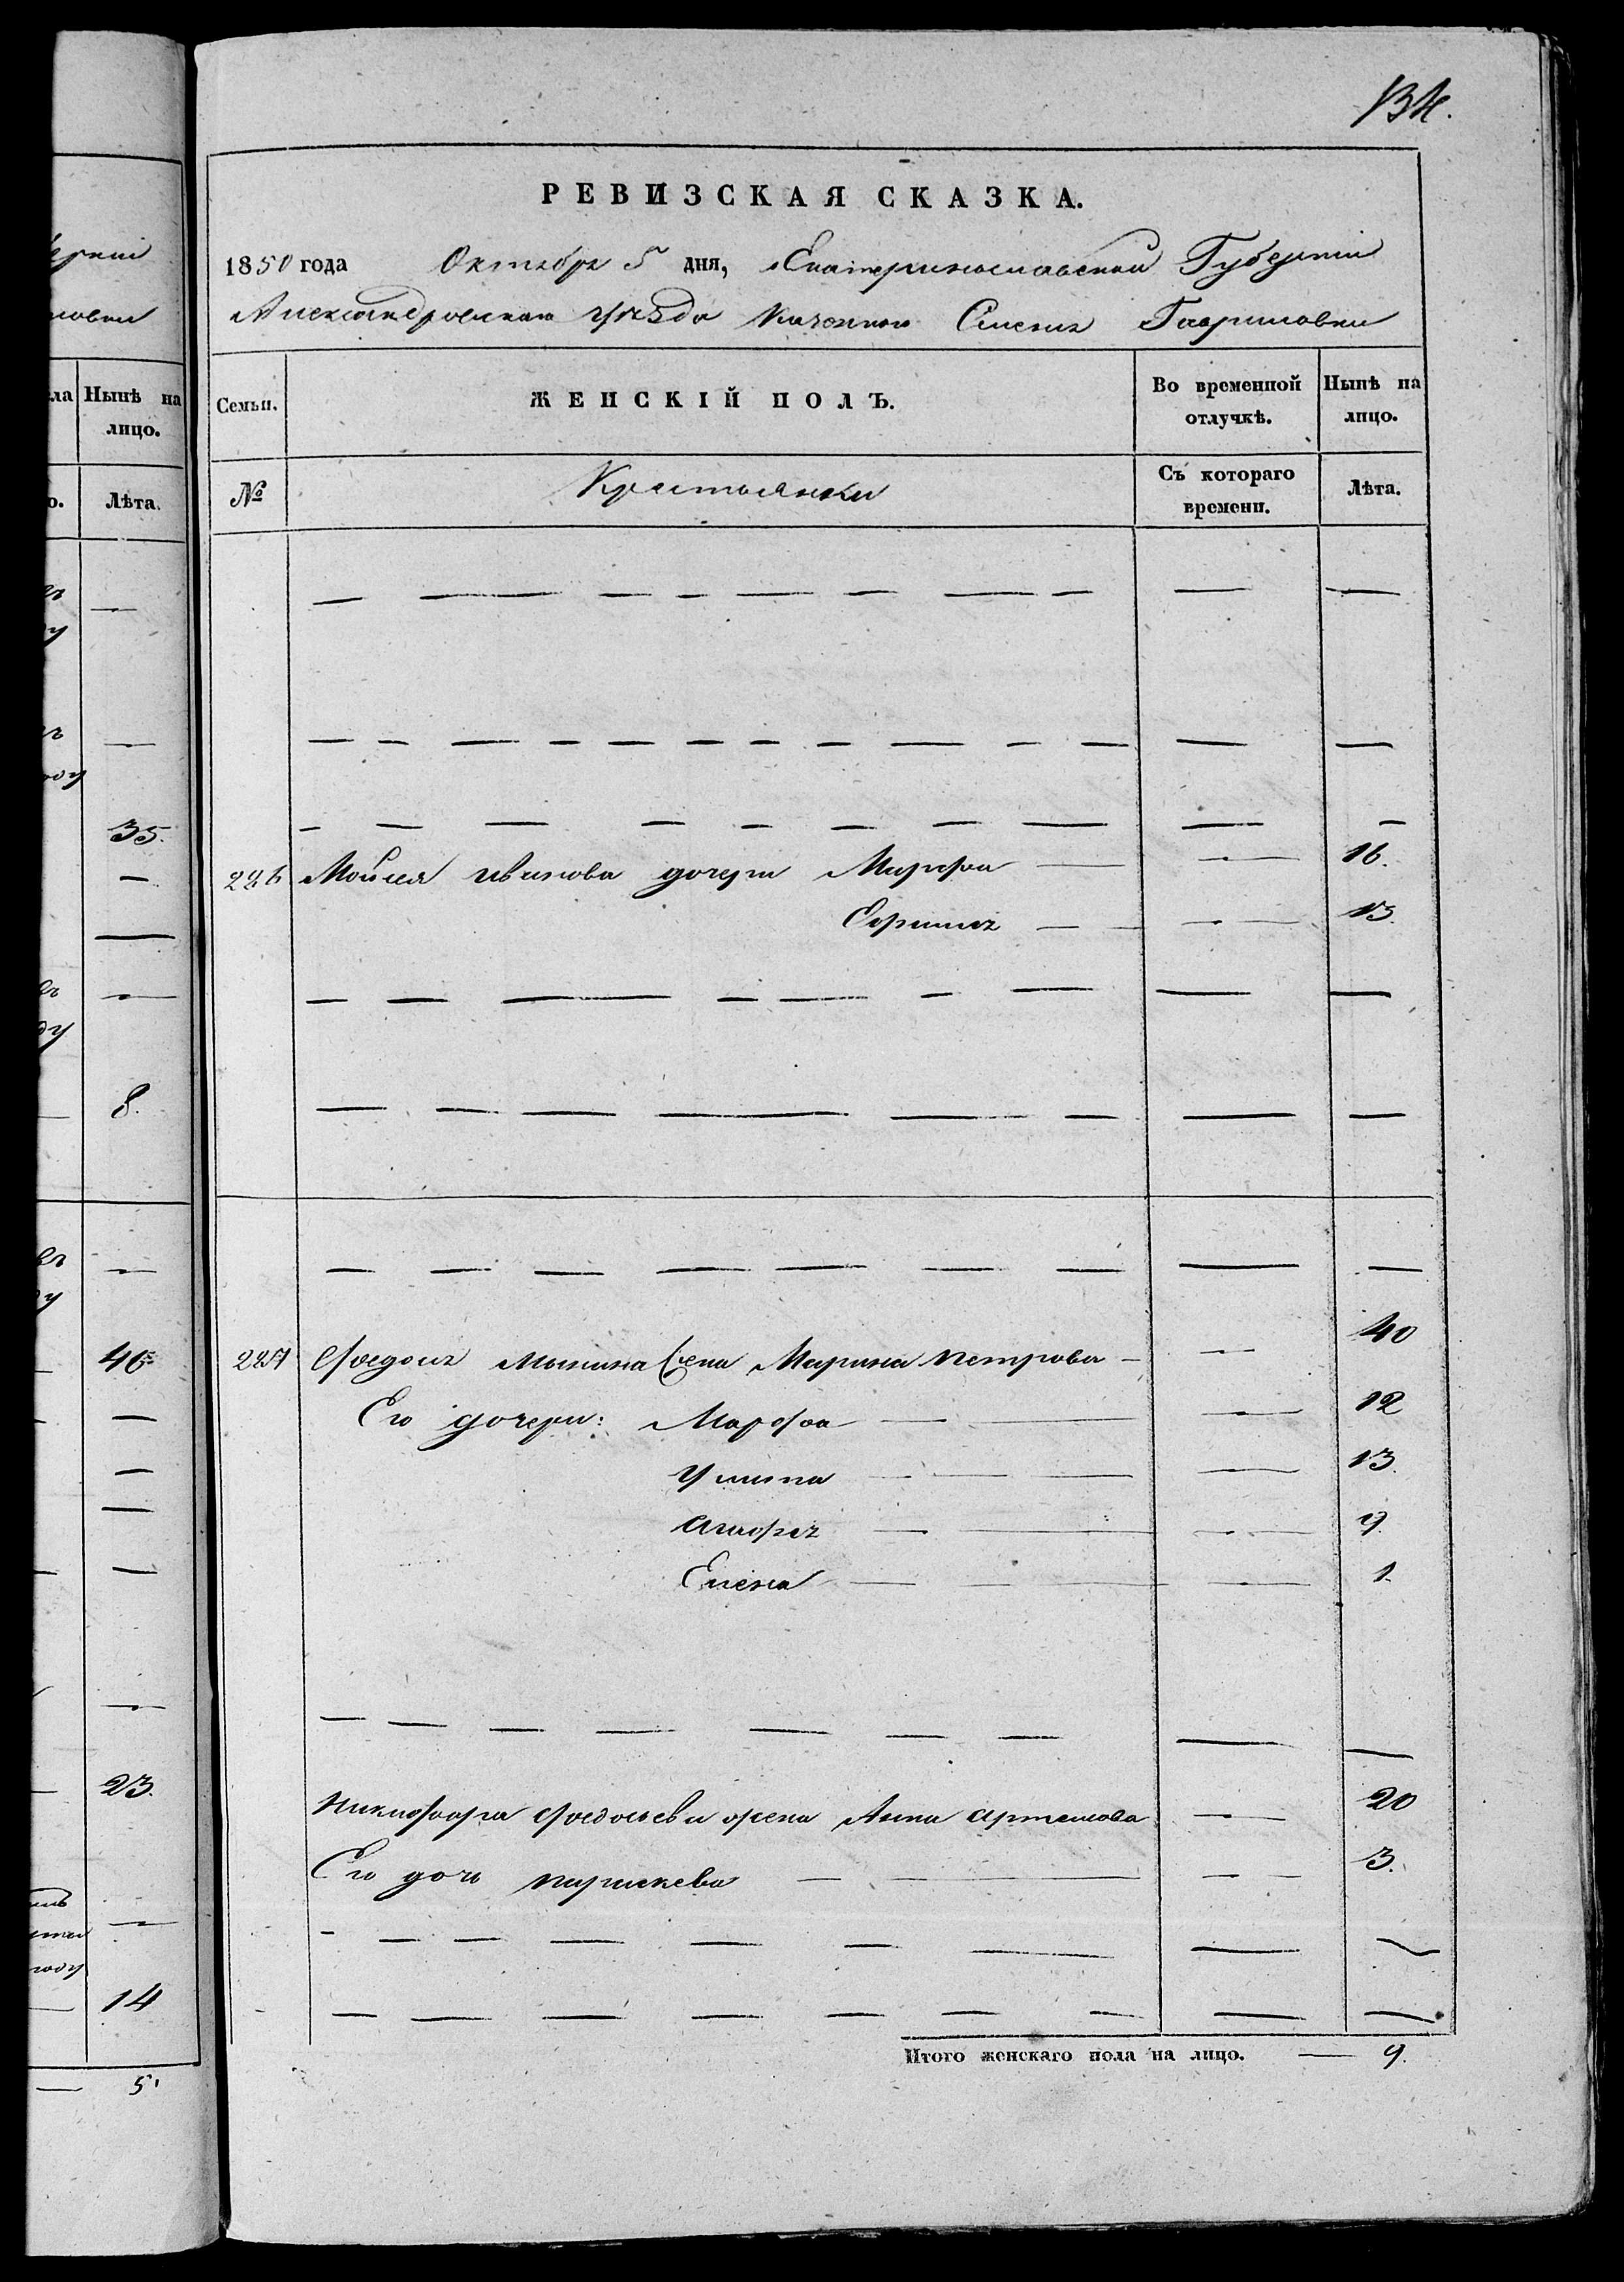 134.
РЕВИЗСКАЯ СКАЗКА.
1850 года Октября 5 дня, Екатеринославской Губерніи
Александровскаго уѣзда Казеннаго Селенія Гавриловки
Нынѣ на
лицо.
Лѣта.
35.
8.
46
23.
14
5
Семьи.
ЖЕНСКІЙ ПОЛЪ.
Во временной
отлучкѣ.
Нынѣ на
лицо.
№
Крестьянки
Съ котораго
времени.
Лѣта.
226 Мойсея Иванова дочери Марфа — — 16.
— — 13.
227 Федота жена Марина Петрова — — 40
Его дочери: Марфа — — 12
Улита — — 13.
Агафія — — 9.
Елена — — 1.
Никифора Федотьева жена Анна Артемова — 20
Его дочь Параскева — — 3.
Итого женскаго пола на лицо. — 9.